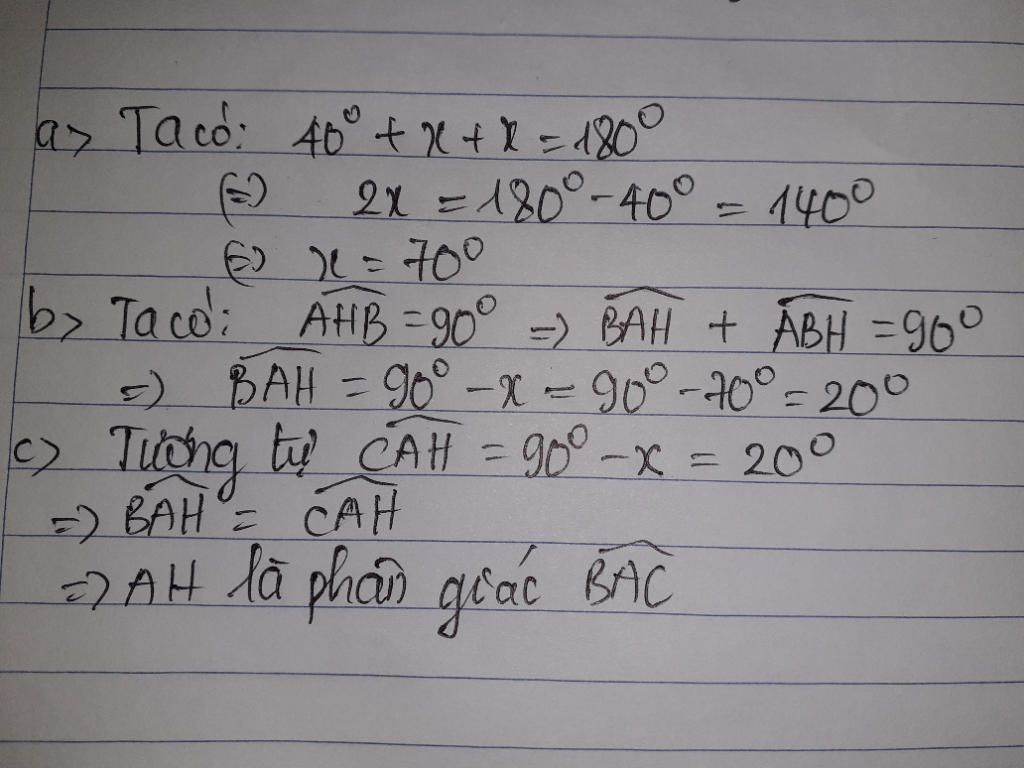 a> Ta có: 40⁰ + x + x = 180⁰
(=) 2x = 180⁰ - 40⁰ = 140⁰
(=) x = 70⁰
b> Ta có: \widehat{AHB} = 90⁰ => \widehat{BAH} + \widehat{ABH} = 90⁰
=> \widehat{BAH} = 90⁰ - x = 90⁰ - 70⁰ = 20⁰
c> Tương tự \widehat{CAH} = 90⁰ - x = 20⁰
=> \widehat{BAH} = \widehat{CAH}
=> AH là phân giác \widehat{BAC}